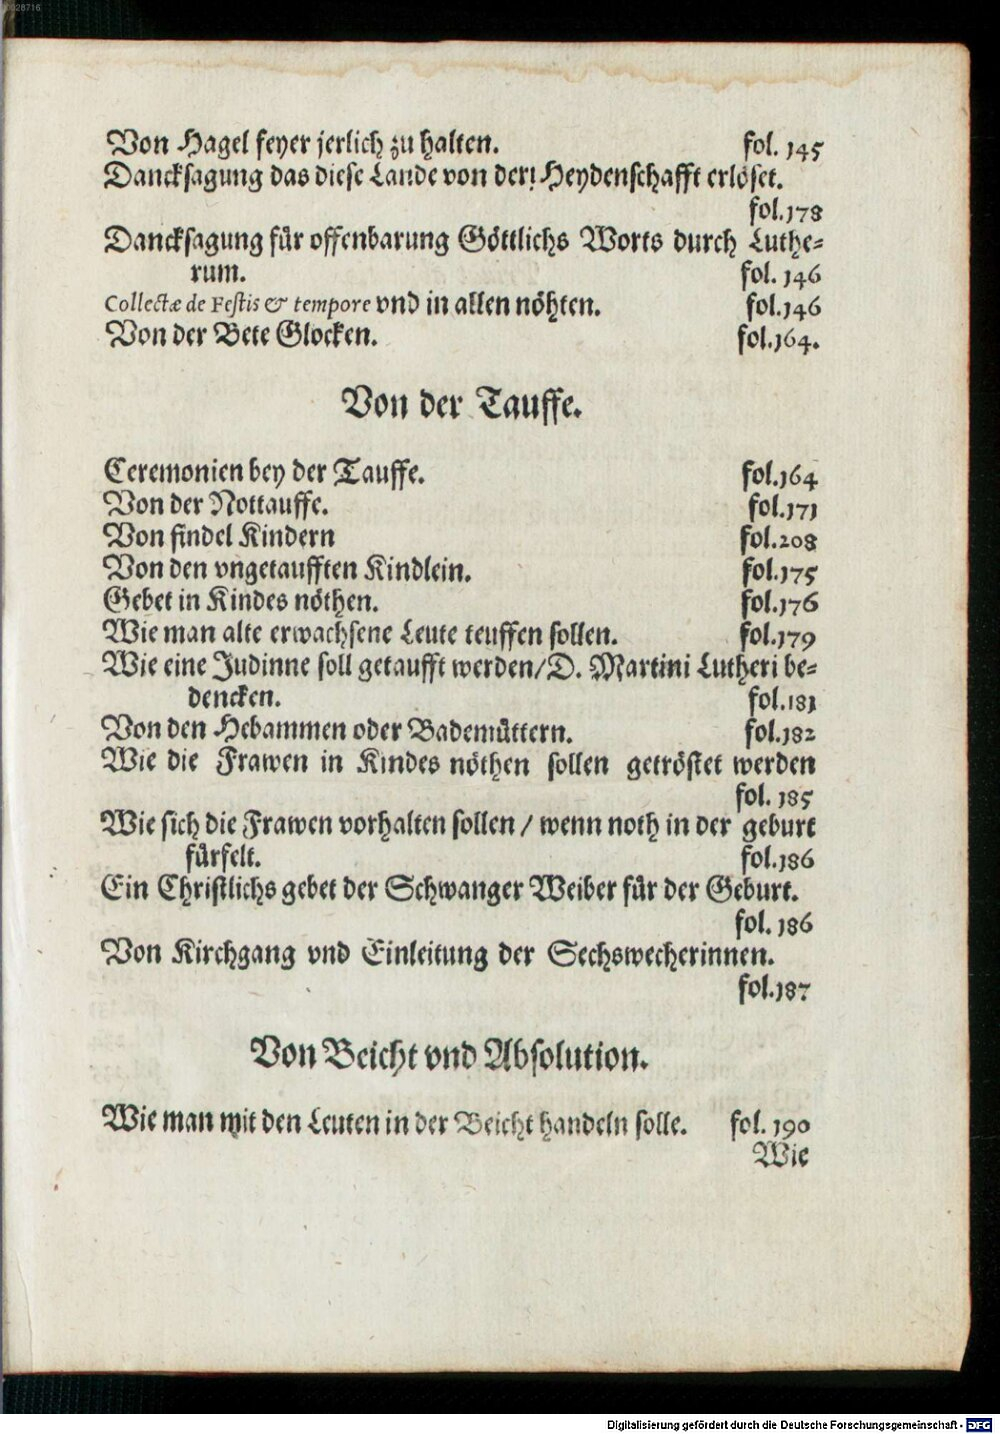 00028716
Von Hagel feyer jerlich zu halten. fol. 145
Dancksagung das diese Lande von der Heydenschafft erlöset.
fol.178
Dancksagung für offenbarung Göttlichs Worts durch Luthe⸗
rum. fol. 146
Collectæ de Festis & tempore vnd in allen nöhten. fol.146
Von der Bete Glocken. fol.164.
Von der Tauffe.
Ceremonien bey der Tauffe. fol.164
Von der Nottauffe. fol.171
Von findel Kindern fol.208
Von den vngetaufften Kindlein. fol.175
Gebet in Kindes nöthen. fol.176
Wie man alte erwachsene Leute teuffen sollen. fol.179
Wie eine Judinne soll getaufft werden/D. Martini Lutheri be⸗
dencken. fol.181
Von den Hebammen oder Bademüttern. fol.182
Wie die Frawen in Kindes nöthen sollen getröstet werden
fol. 185
Wie sich die Frawen vorhalten sollen / wenn noth in der geburt
fürfelt. fol.186
Ein Christlichs gebet der Schwanger Weiber für der Geburt.
fol. 186
Von Kirchgang vnd Einleitung der Sechswecherinnen.
fol.187
Von Beicht vnd Absolution.
Wie man mit den Leuten in der Beicht handeln solle. fol. 190
Wie
Digitalisierung gefördert durch die Deutsche Forschungsgemeinschaft - DFG